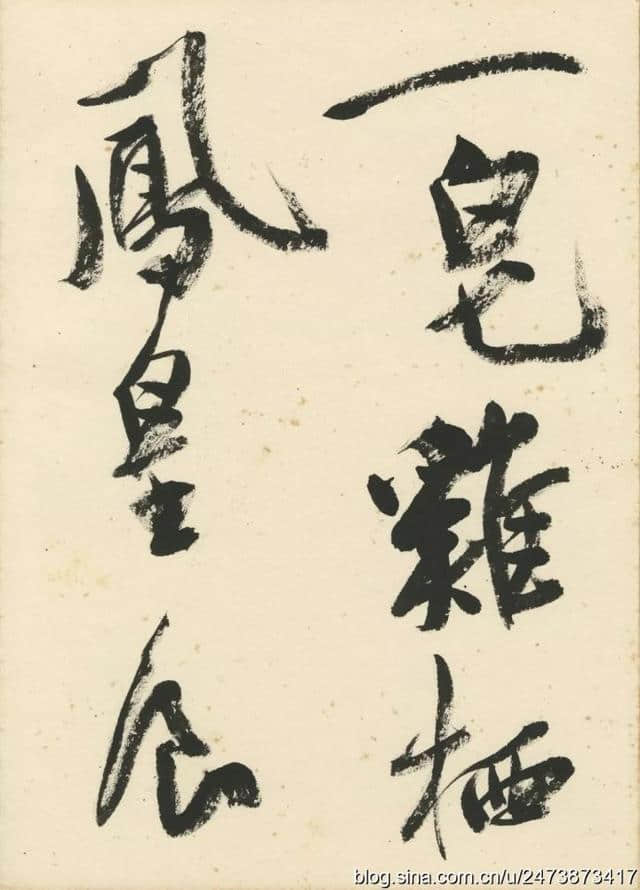 一皂雞栖
鳳皇食
blog.sina.com.cn/u/2473873417